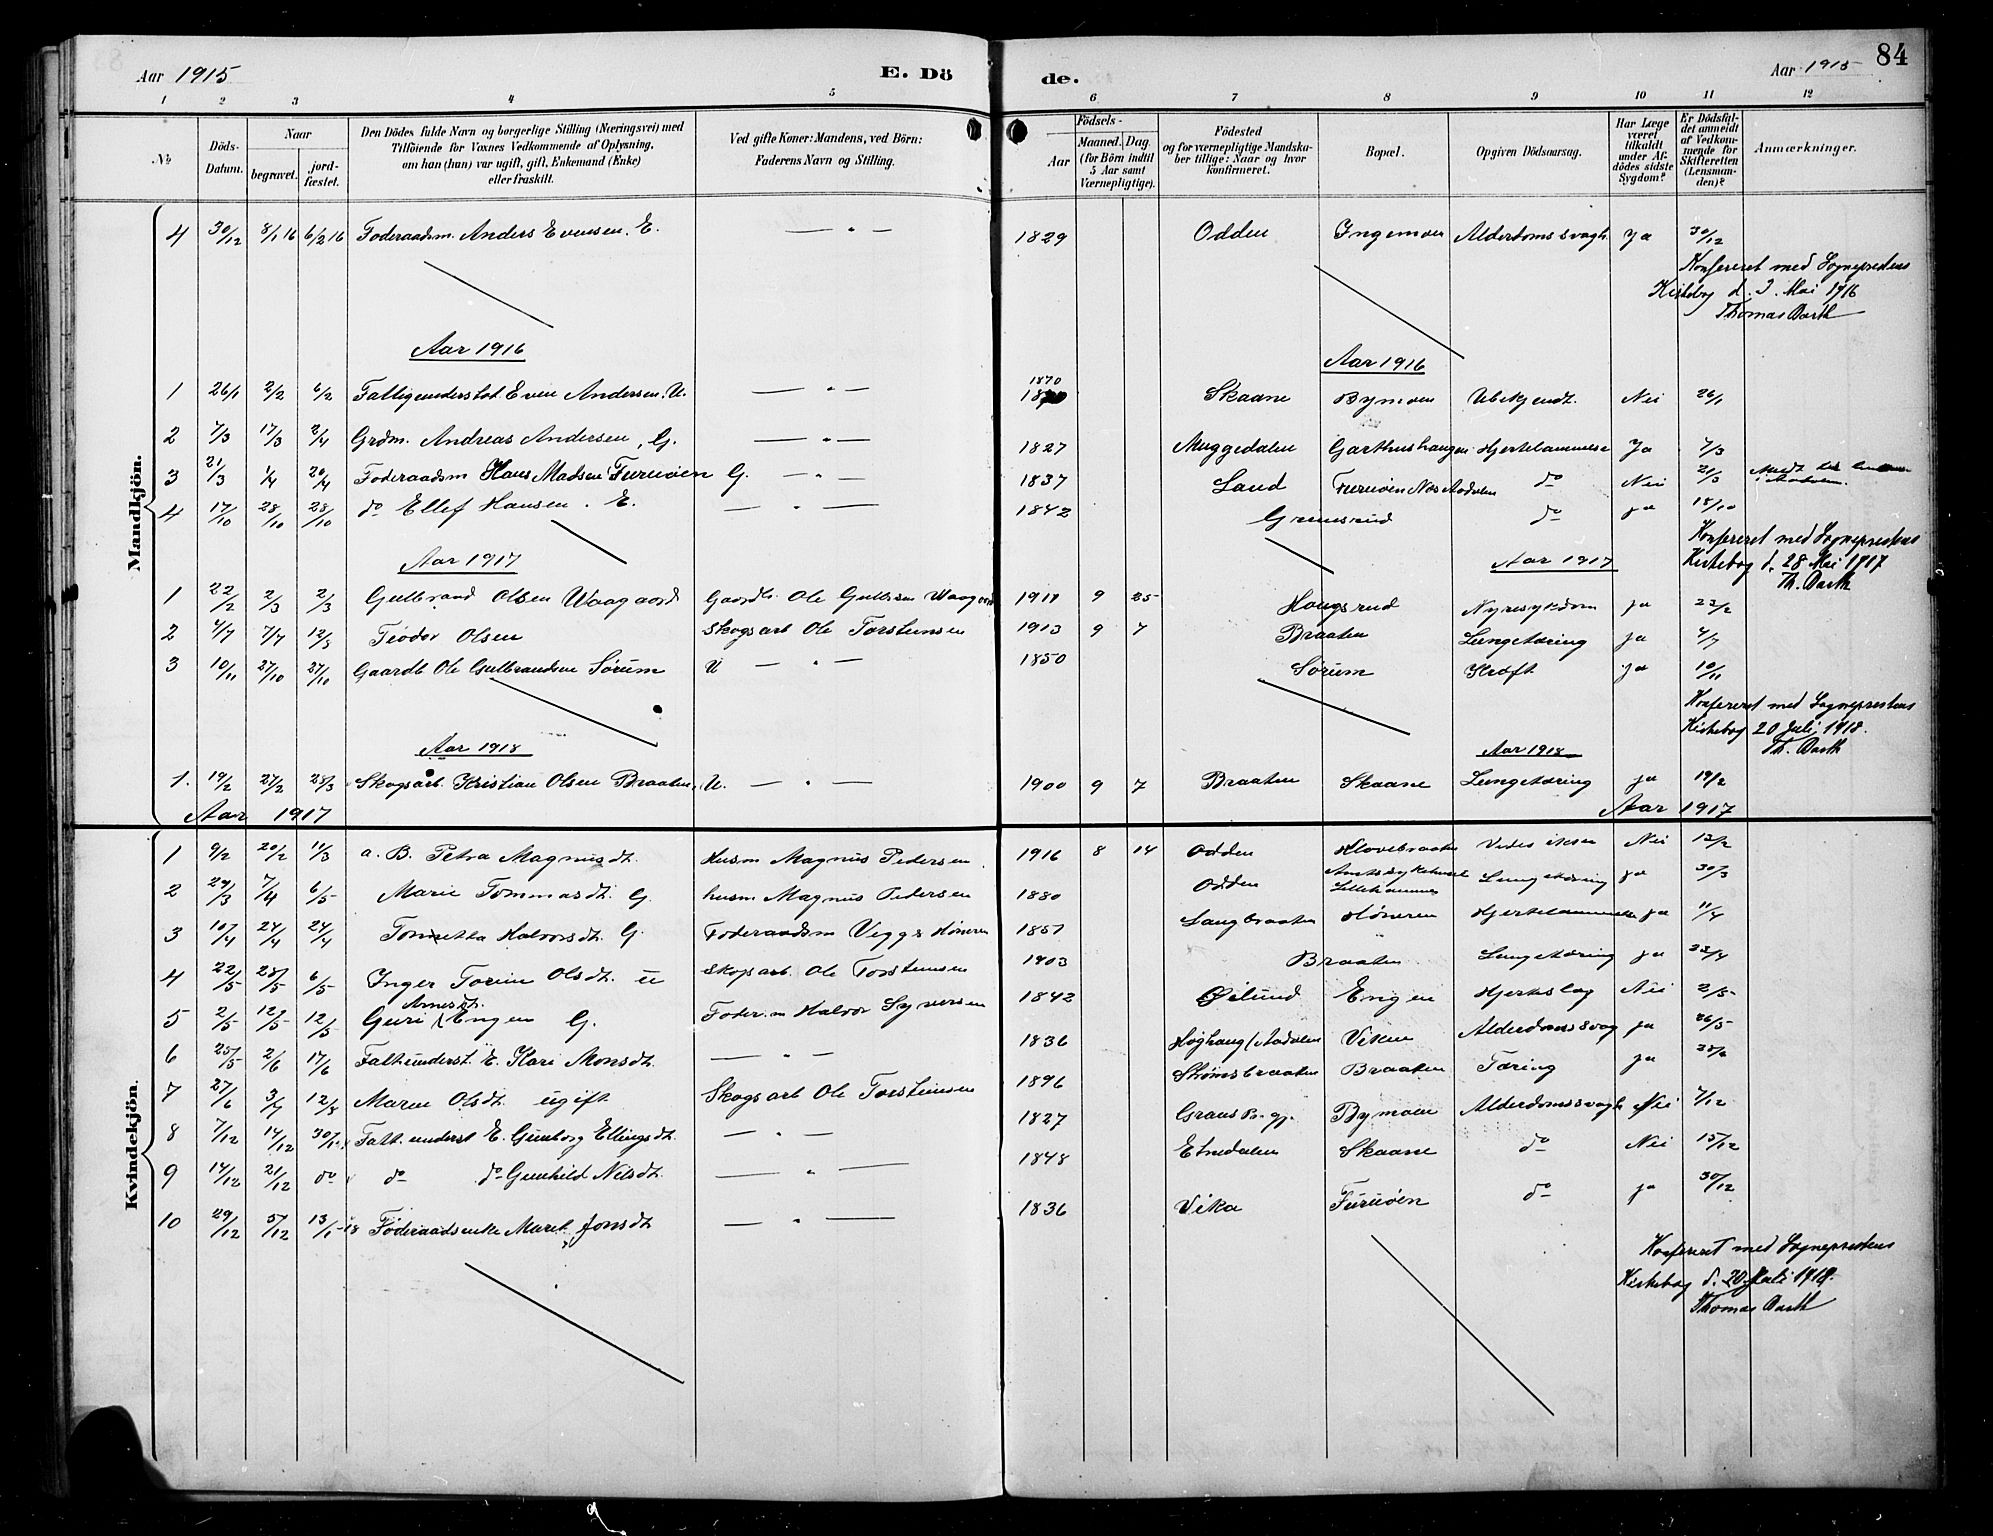 Aar 1915
E. Dö
de.
Aar 1915
84
1 2 3 4 5 6 7 8 9 10 11 12
№
Döds-Datum.
Naar
begravet.
jord-fæstet.
Den Dödes fulde Navn og borgerlige Stilling (Næringsvei) med
Tilföiende for Voxnes Vedkommende af Oplysning,
om han (hun) var ugift, gift, Enkemand (Enke)
eller fraskilt.
Ved gifte Koner: Mandens, ved Börn:
Faderens Navn og Stilling.
Födsels-
Aar
Maaned. Dag.
(for Börn indtil
5 Aar samt
Værnepligtige).
Födested
og for værnepligtige Mandska-
ber tillige: Naar og hvor
konfirmeret.
Bopæl.
Opgiven Dödsaarsag.
Har Læge
været
tilkaldt
under Af-
dödes sidste
Sygdom?
Er Dödsfal-
det anmeldt
af Vedkom-
mende for
Skifteretten
(Lensman-
den)?
Anmærkninger.
Mandkjön.
4 30/12 8/1 16 6/2 16 Foderaadsm. Anders Evensen. E. — " — 1829 Odden Ingemoen Alderdomssvagh. Ja 30/12
Konfereret med Sogneprestens
Kirkebog d. 3. Mai 1916
Thomas Barth
Aar 1916
Aar 1916
1 26/1 2/2 6/2 Fattigunderstøt. Even Andersen. U. — " — 1870 Skaane Bymoen Ubekjendt. Nei 26/1
2 7/3 17/3 2/4 Grdm. Andreas Andersen, G. — " — 1827 Muggedalen Garthushaugen Hjertelammelse Ja 7/3
3 21/3 1/4 20/4 Foderaadsm Hans Madsen Furuøen G. — " — 1837 Land Furuøen Næs Aadalen do Nei 21/3
4 17/10 28/10 28/10 do Ellef Hansen. E. — " — 1842 Grensrud do ja 18/10
Konfereret med Sogneprestens
Kirkebog d. 28 Mai 1917
Th. Barth
Aar 1917
Aar 1917
1 22/2 2/3 2/3 Gulbrand Olsen Waagaard Gaardbr. Ole Gulbrsen Waagaard 1911 9 25 Haugsrud Nyresykdom ja 23/2
2 4/7 7/7 12/8 Teodor Olsen Skogsarb Ole Torstensen 1913 9 7 Braaten Lungetæring ja 4/7
3 10/11 27/10 27/10 Gaardb Ole Gulbrandsen Sørum U — " — 1850 Sørum Kræft ja 10/11
Konfereret med Sogneprestens
Kirkebog 20 Juli 1918.
Th. Barth
Aar 1918
Aar 1918
1. 19/2 27/2 28/3 Skogsarb. Kristian Olsen Braaten, U. — " — 1900 9 7 Braaten Skaane Lungetæring ja 19/2
Aar 1917
Aar 1917
Kvindekjön.
1 9/2 20/2 11/3 a. B. Petra Magnusdt. Husm Magnus Pedersen 1916 8 14 Odden Klovebraaten Nei 12/2
2 29/3 7/4 6/5 Marie Tommasdt. G. husm Magnus Pedersen 1880 Odden Amtssykehuset Lillehammer Lungetæring ja 30/3
3 10/4 24/4 24/4 Tonnetta Halvorsdt. G. Foderaadsm Viggs Høneren 1857 Langbraaten Høneren Hjertelammelse ja 11/4
4 22/5 28/5 6/5 Inger Torine Olsdt. u Skogsarb. Ole Torstensen 1903 Braaten Lungetæring ja 22/4
5 2/5 12/5 12/5 Guri Arnesdt. Engen G. Foder.m Halvor Syversen 1842 Øilund Engen Hjerteslag Nei 2/5
6 25/5 2/6 17/6 Fattunderst. E. Kari Monsdt. — " — 1836 Høghaug / Aadalen Viken Alderdomssvag ja 26/5
7 27/6 3/7 12/8 Maren Olsdt. ugift Skogsarb Ole Torstensen 1896 Strømsbraaten Braaten Tæring ja 28/6
8 7/12 14/12 30/12 Fatt. underst E. Gunborg Ellingsdt. — " — 1827 Grans Pr.gj. Bymoen Alderdomssvagh Nei 7/12
9 14/12 21/12 do do do Gunhild Nilsdt. — " — 1848 Etnedalen Skaane do Nei 15/12
10 29/12 5/12 13/1-18 Føderaadsenke Marit Jonsdt — " — 1836 Vika Furuøen do ja 30/12
Konfereret med Sogneprestens
Kirkebog d. 20 Juli 1918.
Thomas Barth